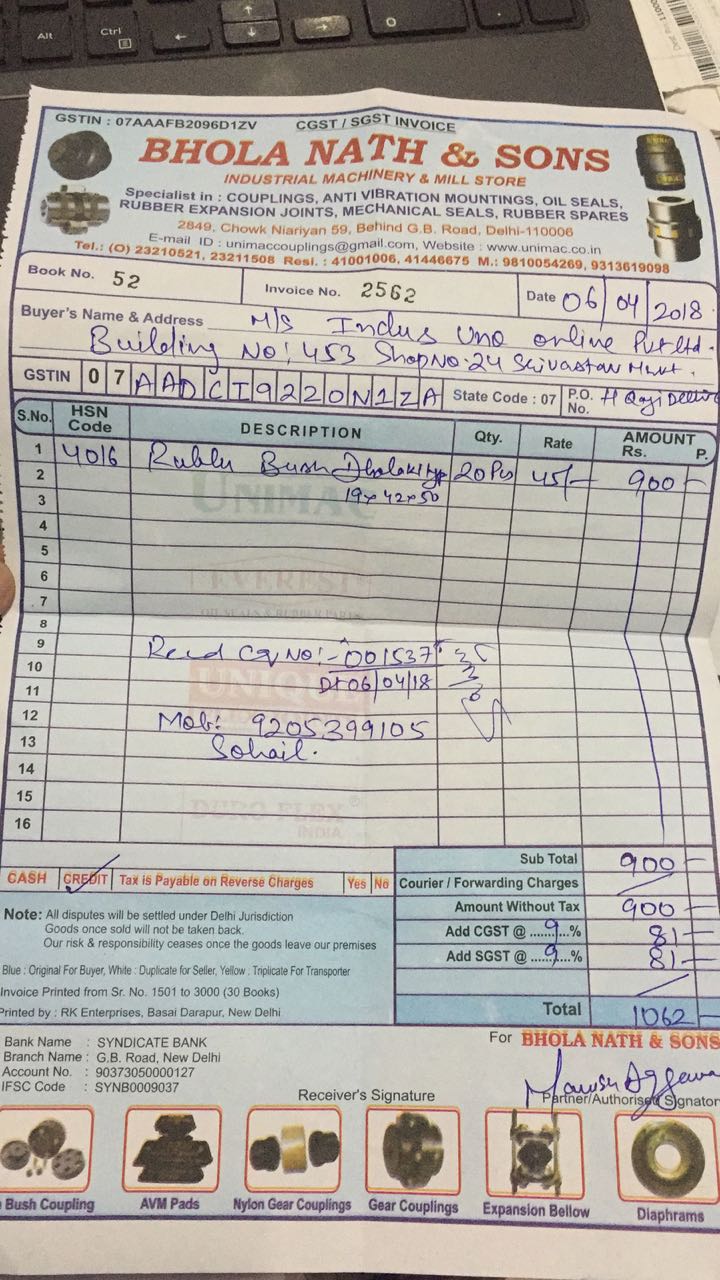 Alt
Ctrl
GSTIN : 07AAAFB2096D1ZV CGST / SGST INVOICE
BHOLA NATH & SONS
INDUSTRIAL MACHINERY & MILL STORE
Specialist in : COUPLINGS, ANTI VIBRATION MOUNTINGS, OIL SEALS,
RUBBER EXPANSION JOINTS, MECHANICAL SEALS, RUBBER SPARES
2849, Chowk Niariyan 59, Behind G.B. Road, Delhi-110006
E-mail ID : unimaccouplings@gmail.com, Website : www.unimac.co.in
Tel.: (O) 23210521, 23211508 Resi. : 41001006, 41446675 M.: 9810054269, 9313619098
Book No. 52 Invoice No. 2562 Date 06/04/2018
Buyer's Name & Address M/S Indus Uno online Pvt Ltd.
Building No: 453 Shop No. 24 Srivastav Mkt.
GSTIN 07AADCI9220N1ZA State Code : 07 P.O. No. H Qazi Delhi
S.No. HSN Code DESCRIPTION Qty. Rate AMOUNT Rs. P.
1 4016 Rubber Bush Dholaki type 20 Pcs 45/- 900 -
2
3 19x42x50
UNIMAC
4
5
6 EVEREST
7 OIL SEALS & RUBBER PARTS
8
9 Recd Cq No:- 001537
10 UNIQUE
11 Dt 06/04/18
12 Mob: 9205399105
13 Sohail.
14
15 DURO FLEX ®
16 INDIA
Sub Total 900 -
CASH CREDIT Tax is Payable on Reverse Charges Yes No Courier / Forwarding Charges
Amount Without Tax 900 -
Note: All disputes will be settled under Delhi Jurisdiction Add CGST @ ...9...% 81 -
Goods once sold will not be taken back. Add SGST @ ...9...% 81 -
Our risk & responsibility ceases once the goods leave our premises
Blue : Original For Buyer, White : Duplicate for Seller, Yellow : Triplicate For Transporter
Invoice Printed from Sr. No. 1501 to 3000 (30 Books)
Printed by : RK Enterprises, Basai Darapur, New Delhi Total 1062 -
Bank Name : SYNDICATE BANK For BHOLA NATH & SONS
Branch Name : G.B. Road, New Delhi
Account No. : 90373050000127
IFSC Code : SYNB0009037 Manish Aggarwal
Receiver's Signature Partner/Authorised Signator
Bush Coupling AVM Pads Nylon Gear Couplings Gear Couplings Expansion Bellow Diaphrams